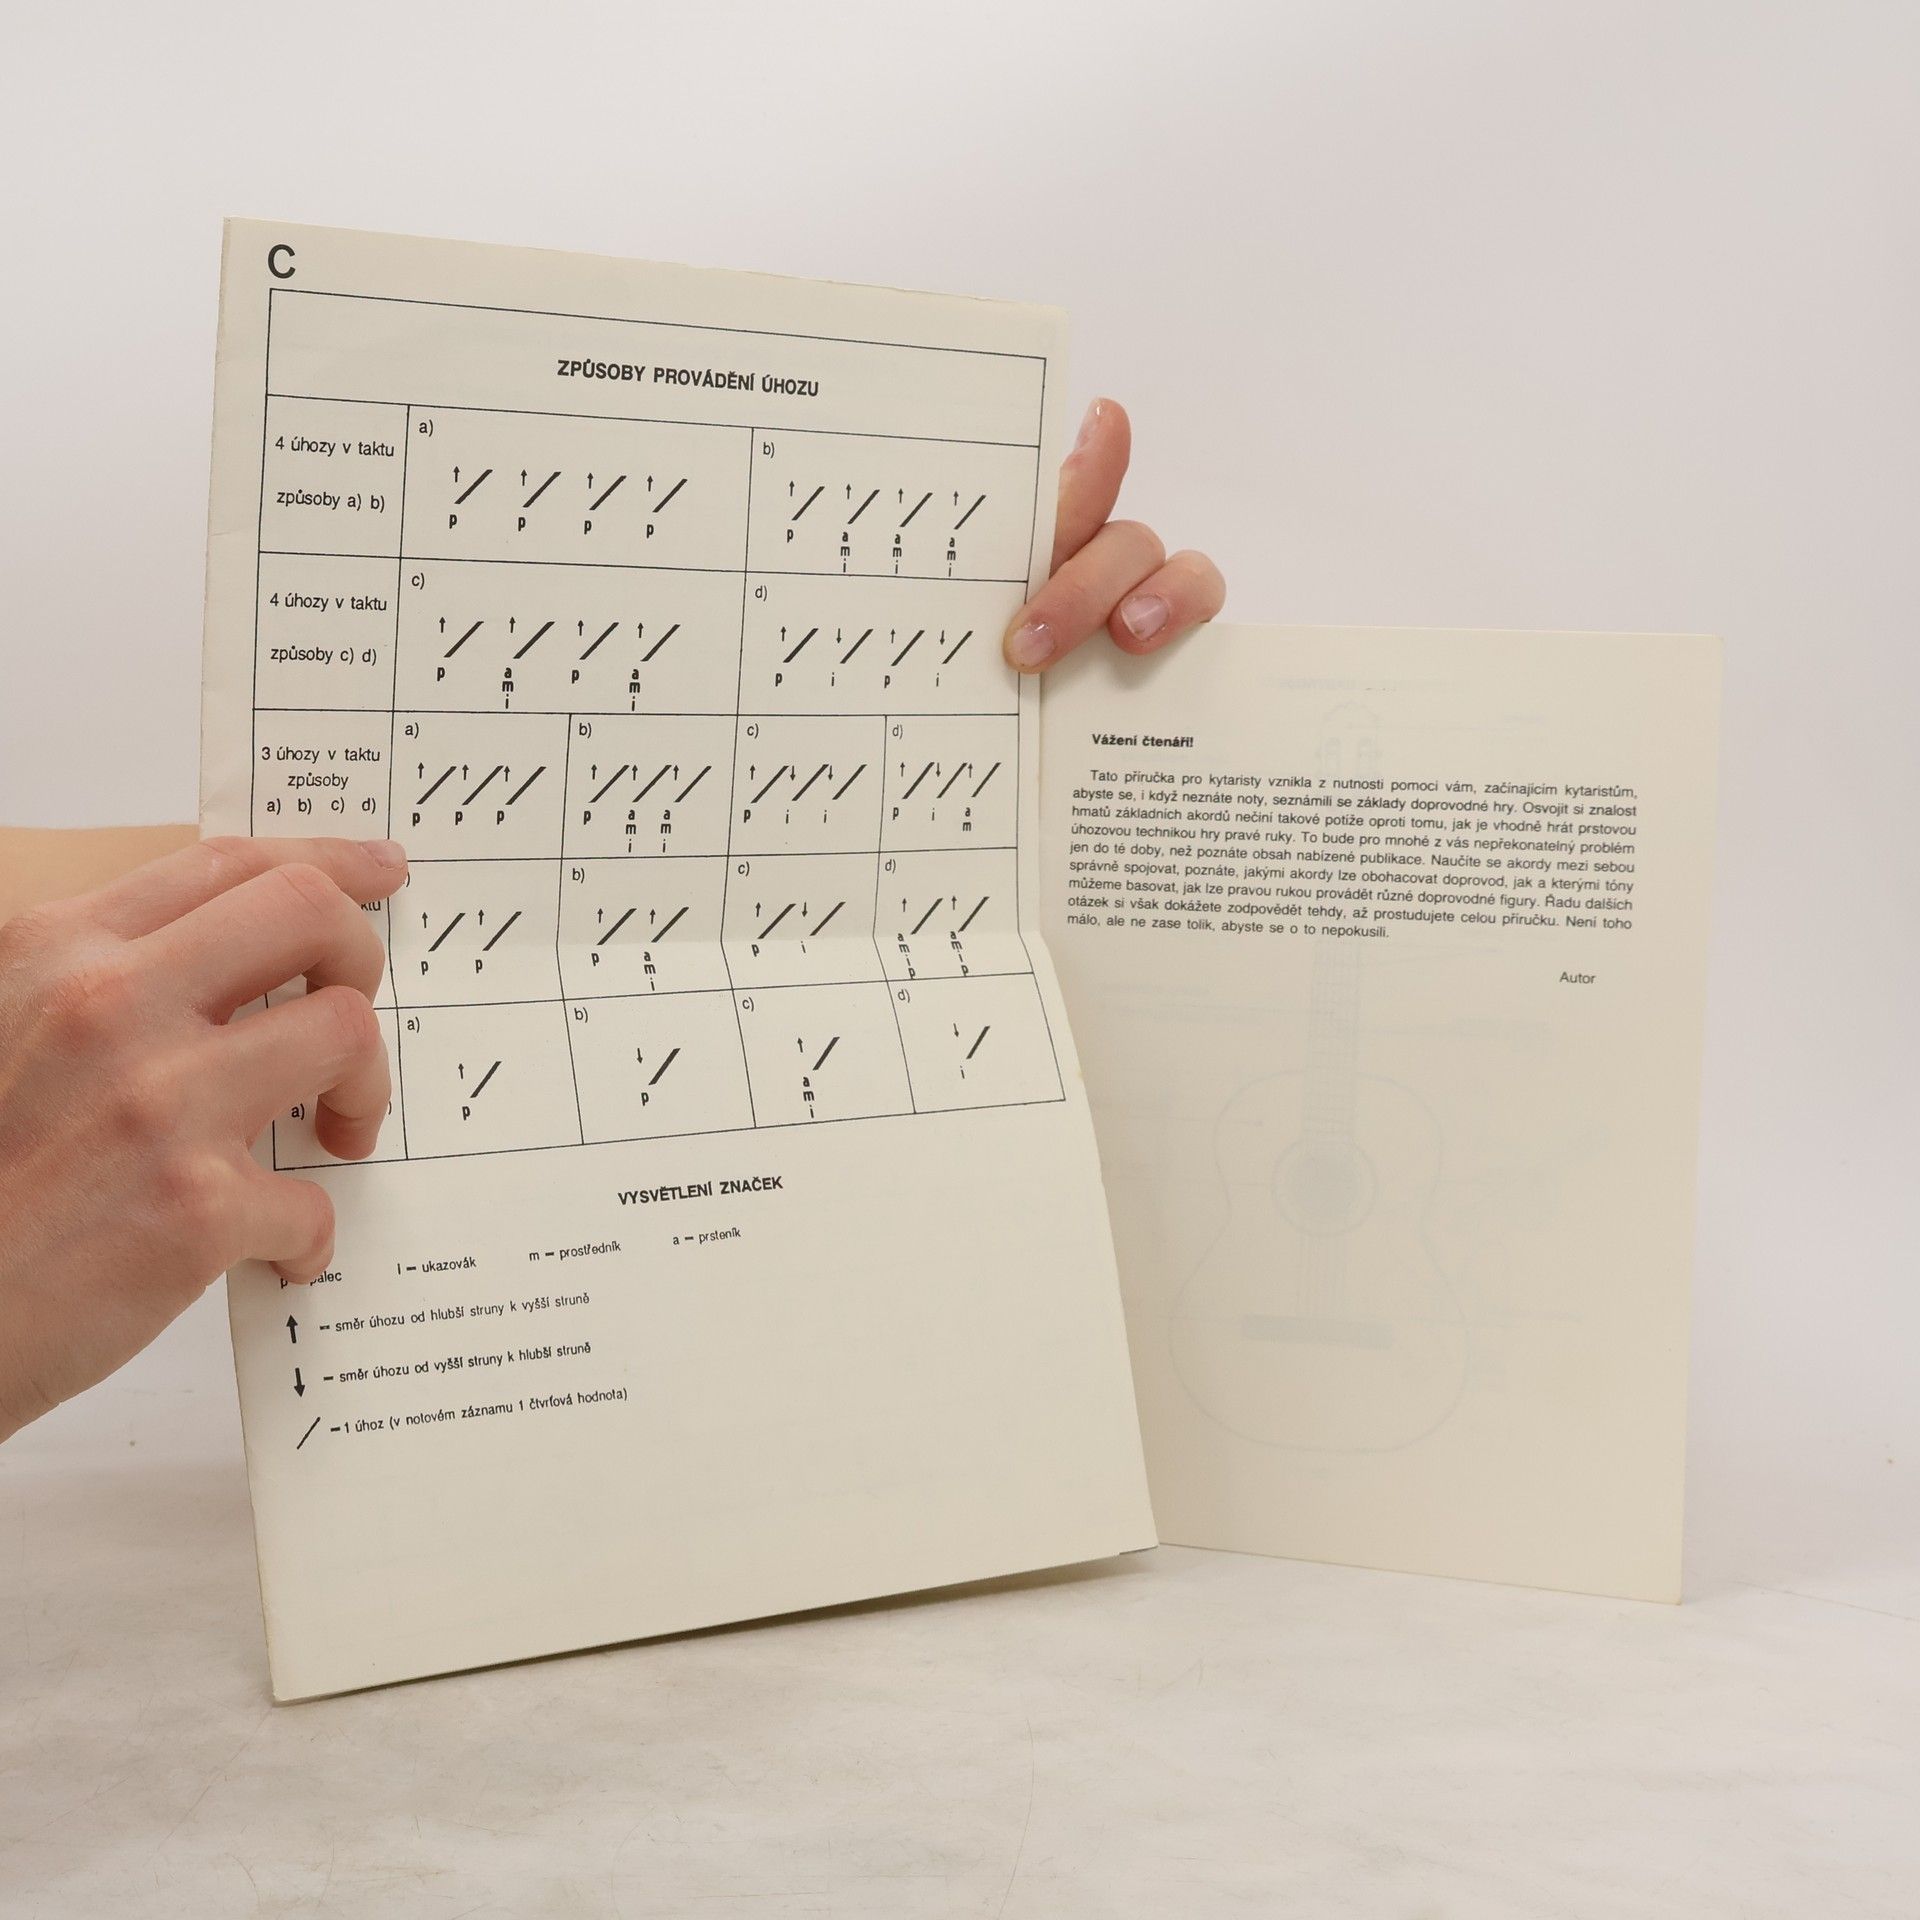 C
ZPŮSOBY PROVÁDĚNÍ ÚHOZU
4 úhozy v taktu
způsoby a) b)
a)
↑ ↑ ↑ ↑
p p p p
b)
↑ ↑ ↑ ↑
p ami ami ami
4 úhozy v taktu
způsoby c) d)
c)
↑ ↑ ↑ ↑
p ami p ami
d)
↑ ↓ ↑ ↓
p i p i
3 úhozy v taktu
způsoby
a) b) c) d)
a)
↑ ↑ ↑
p p p
b)
↑ ↑ ↑
p ami ami
c)
↑ ↓ ↓
p i i
d)
↑ ↓ ↑
p i am
↑ ↑
p p
b)
↑ ↑
p ami
c)
↑ ↓
p i
d)
↑ ↑
amip amip
a)
a)
↑
p
b)
↓
p
c)
↑
ami
d)
↓
i
VYSVĚTLENÍ ZNAČEK
i – ukazovák m – prostředník a – prsteník
↑ – směr úhozu od hlubší struny k vyšší struně
↓ – směr úhozu od vyšší struny k hlubší struně
/ – 1 úhoz (v notovém záznamu 1 čtvrťová hodnota)
Vážení čtenáři!
Tato příručka pro kytaristy vznikla z nutnosti pomoci vám, začínajícím kytaristům,
abyste se, i když neznáte noty, seznámili se základy doprovodné hry. Osvojit si znalost
hmatů základních akordů nečiní takové potíže oproti tomu, jak je vhodně hrát prstovou
úhozovou technikou hry pravé ruky. To bude pro mnohé z vás nepřekonatelný problém
jen do té doby, než poznáte obsah nabízené publikace. Naučíte se akordy mezi sebou
správně spojovat, poznáte, jakými akordy lze obohacovat doprovod, jak a kterými tóny
můžeme basovat, jak lze pravou rukou provádět různé doprovodné figury. Řadu dalších
otázek si však dokážete zodpovědět tehdy, až prostudujete celou příručku. Není toho
málo, ale ne zase tolik, abyste se o to nepokusili.
Autor